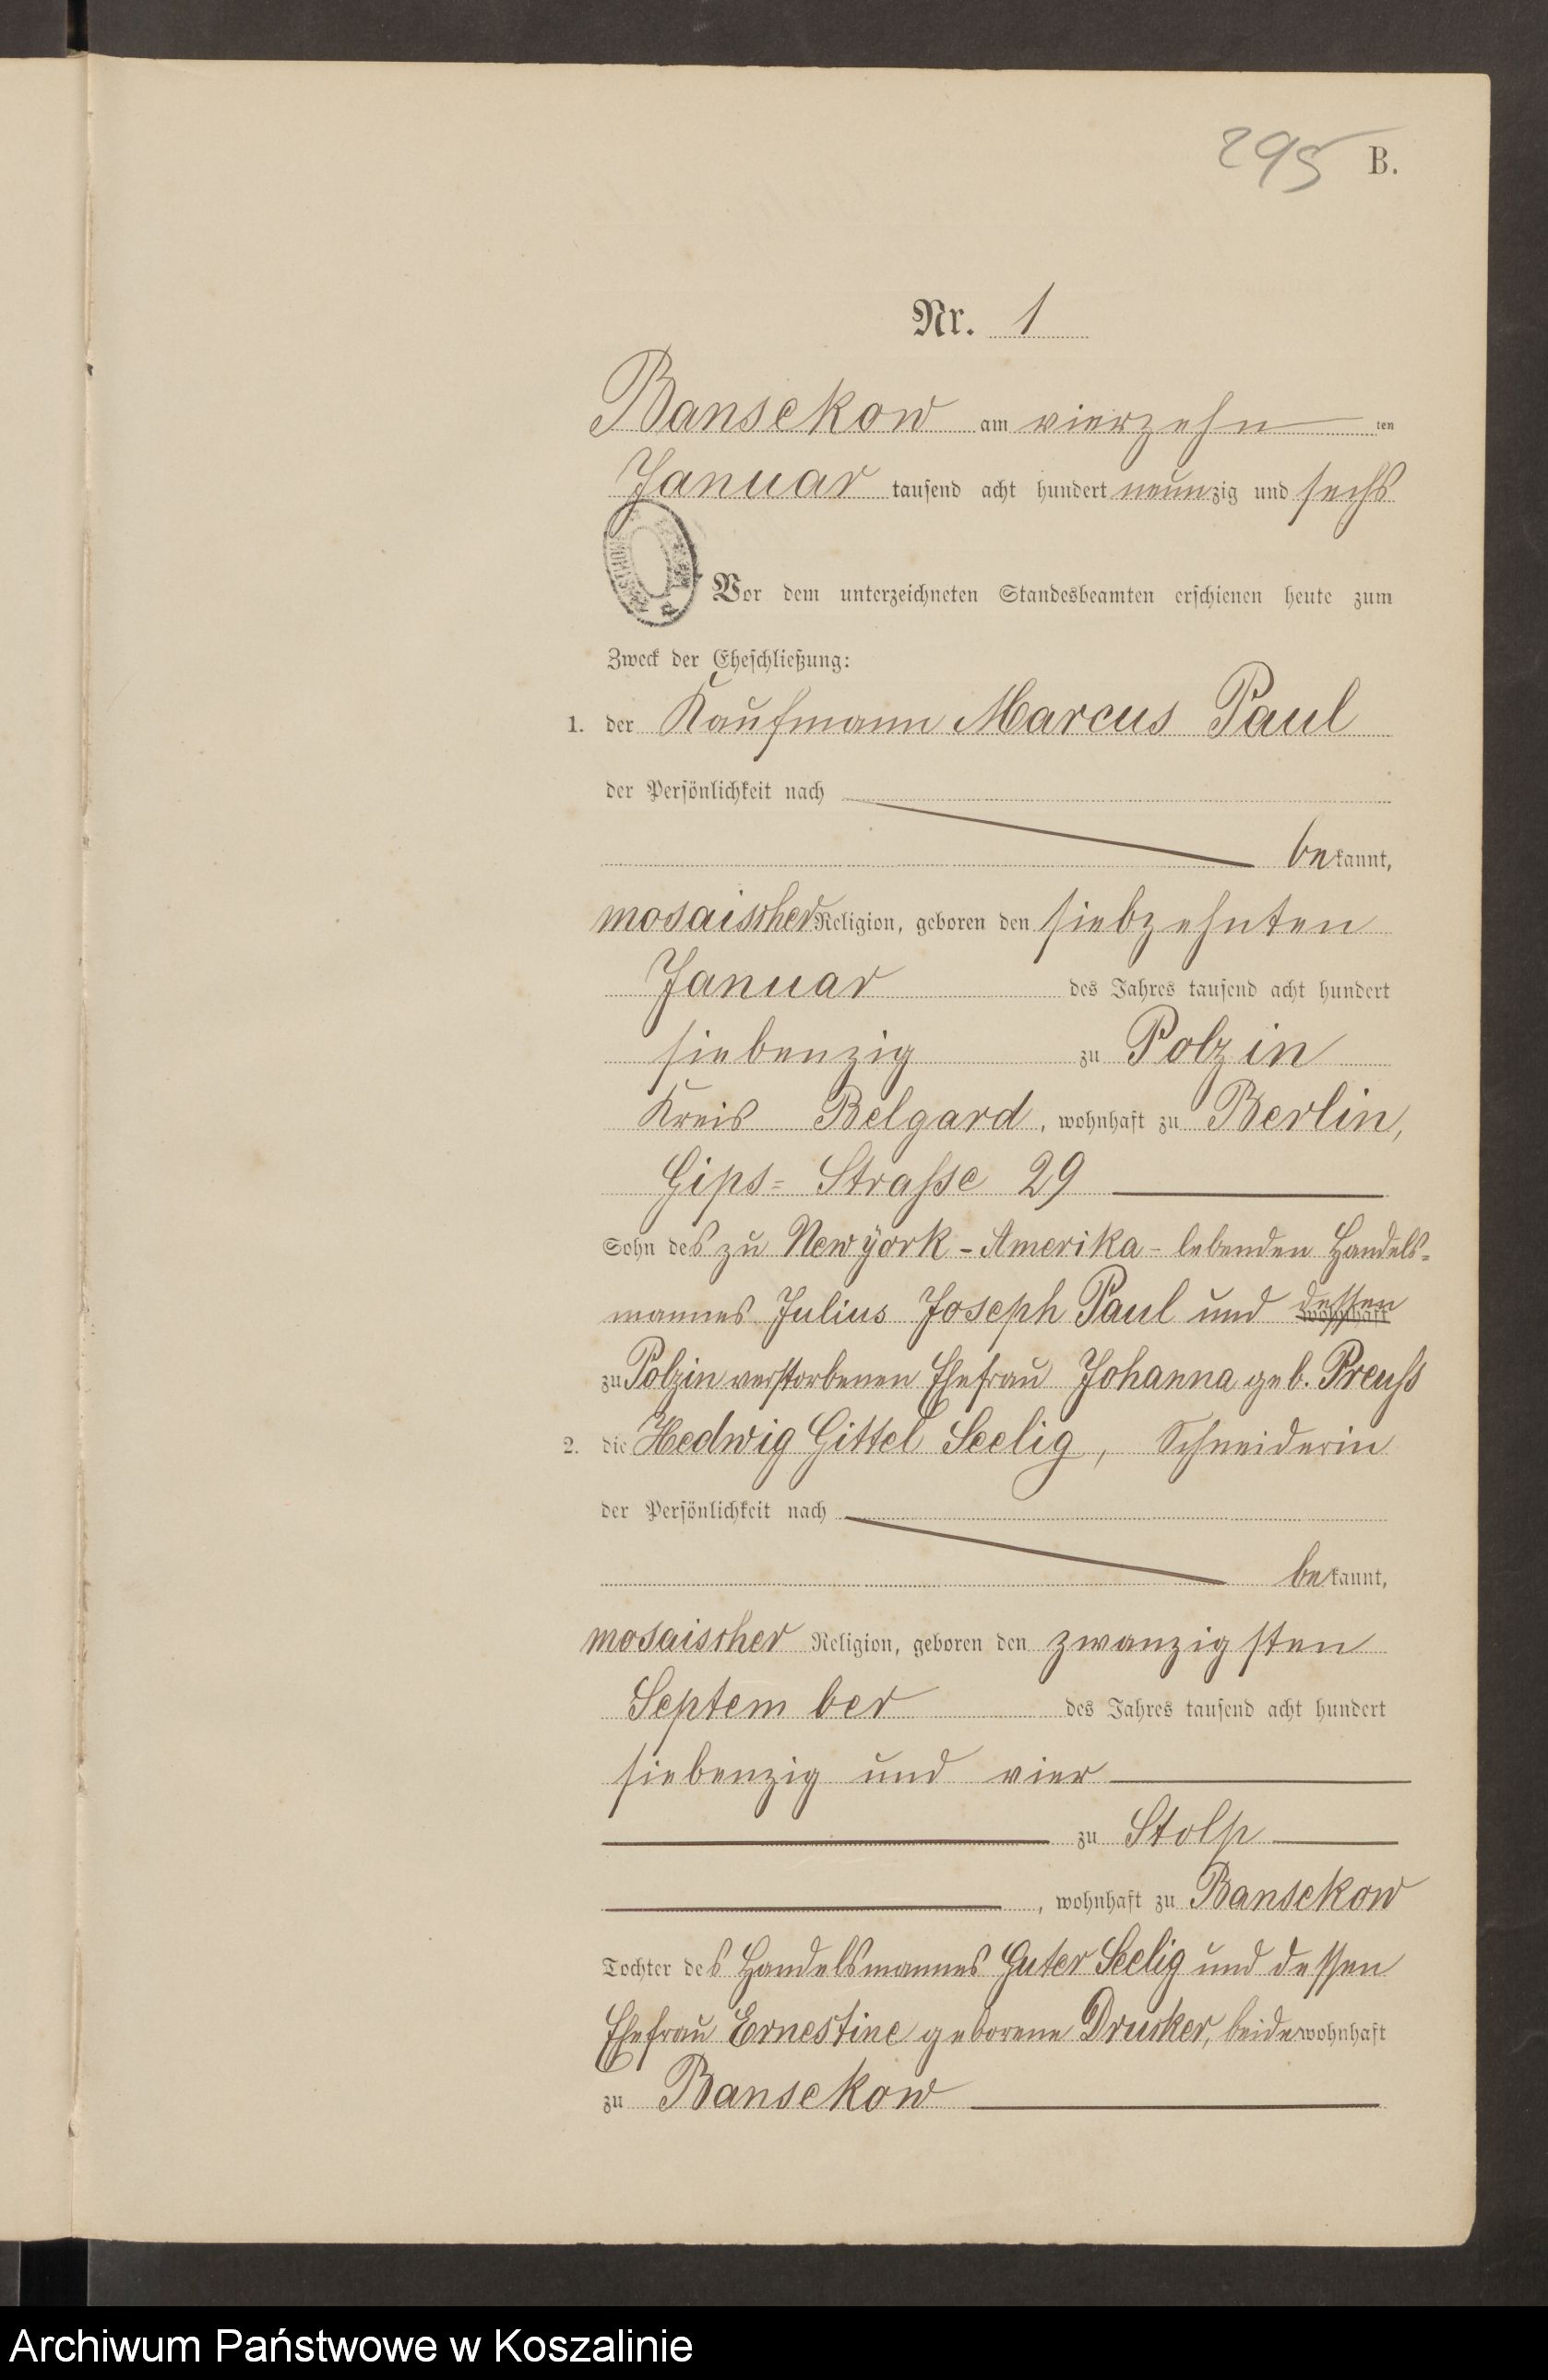 295 B.
Nr. 1
Bansekow am vierzehn ten
Januar tausend acht hundert neunzig und sechs
Vor dem unterzeichneten Standesbeamten erschienen heute zum
Zweck der Eheschließung:
1. der Kaufmann Marcus Paul
der Persönlichkeit nach
bekannt,
mosaischer Religion, geboren den siebzehnten
Januar des Jahres tausend acht hundert
siebenzig zu Polzin
Kreis Belgard, wohnhaft zu Berlin,
Gips-Strasse 29
Sohn des zu Newyork - Amerika - lebenden Handels-
mannes Julius Joseph Paul und dessen wohnhaft
zu Polzin verstorbenen Ehefrau Johanna geb. Preuss
2. die Hedwig Gittel Seelig, Schneiderin
der Persönlichkeit nach
bekannt,
mosaischer Religion, geboren den zwanzigsten
September des Jahres tausend acht hundert
siebenzig und vier
zu Stolp
, wohnhaft zu Bansekow
Tochter des Handelsmannes Guter Seelig und dessen
Ehefrau Ernestine geborene Drucker, beide wohnhaft
zu Bansekow
Archiwum Państwowe w Koszalinie